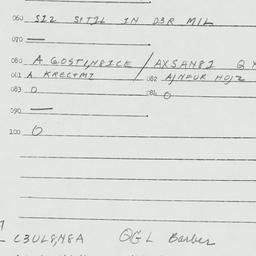 060 SIZ SITZL IN D3R MIL
070 —
080 A GOSTI,N8ICE / AXSAN8I Q
081 A KRECTMI 082 AJNFUR HOJZ
083 0 084 0
090 —
100 0
C3UL8,N8A QGL Barber